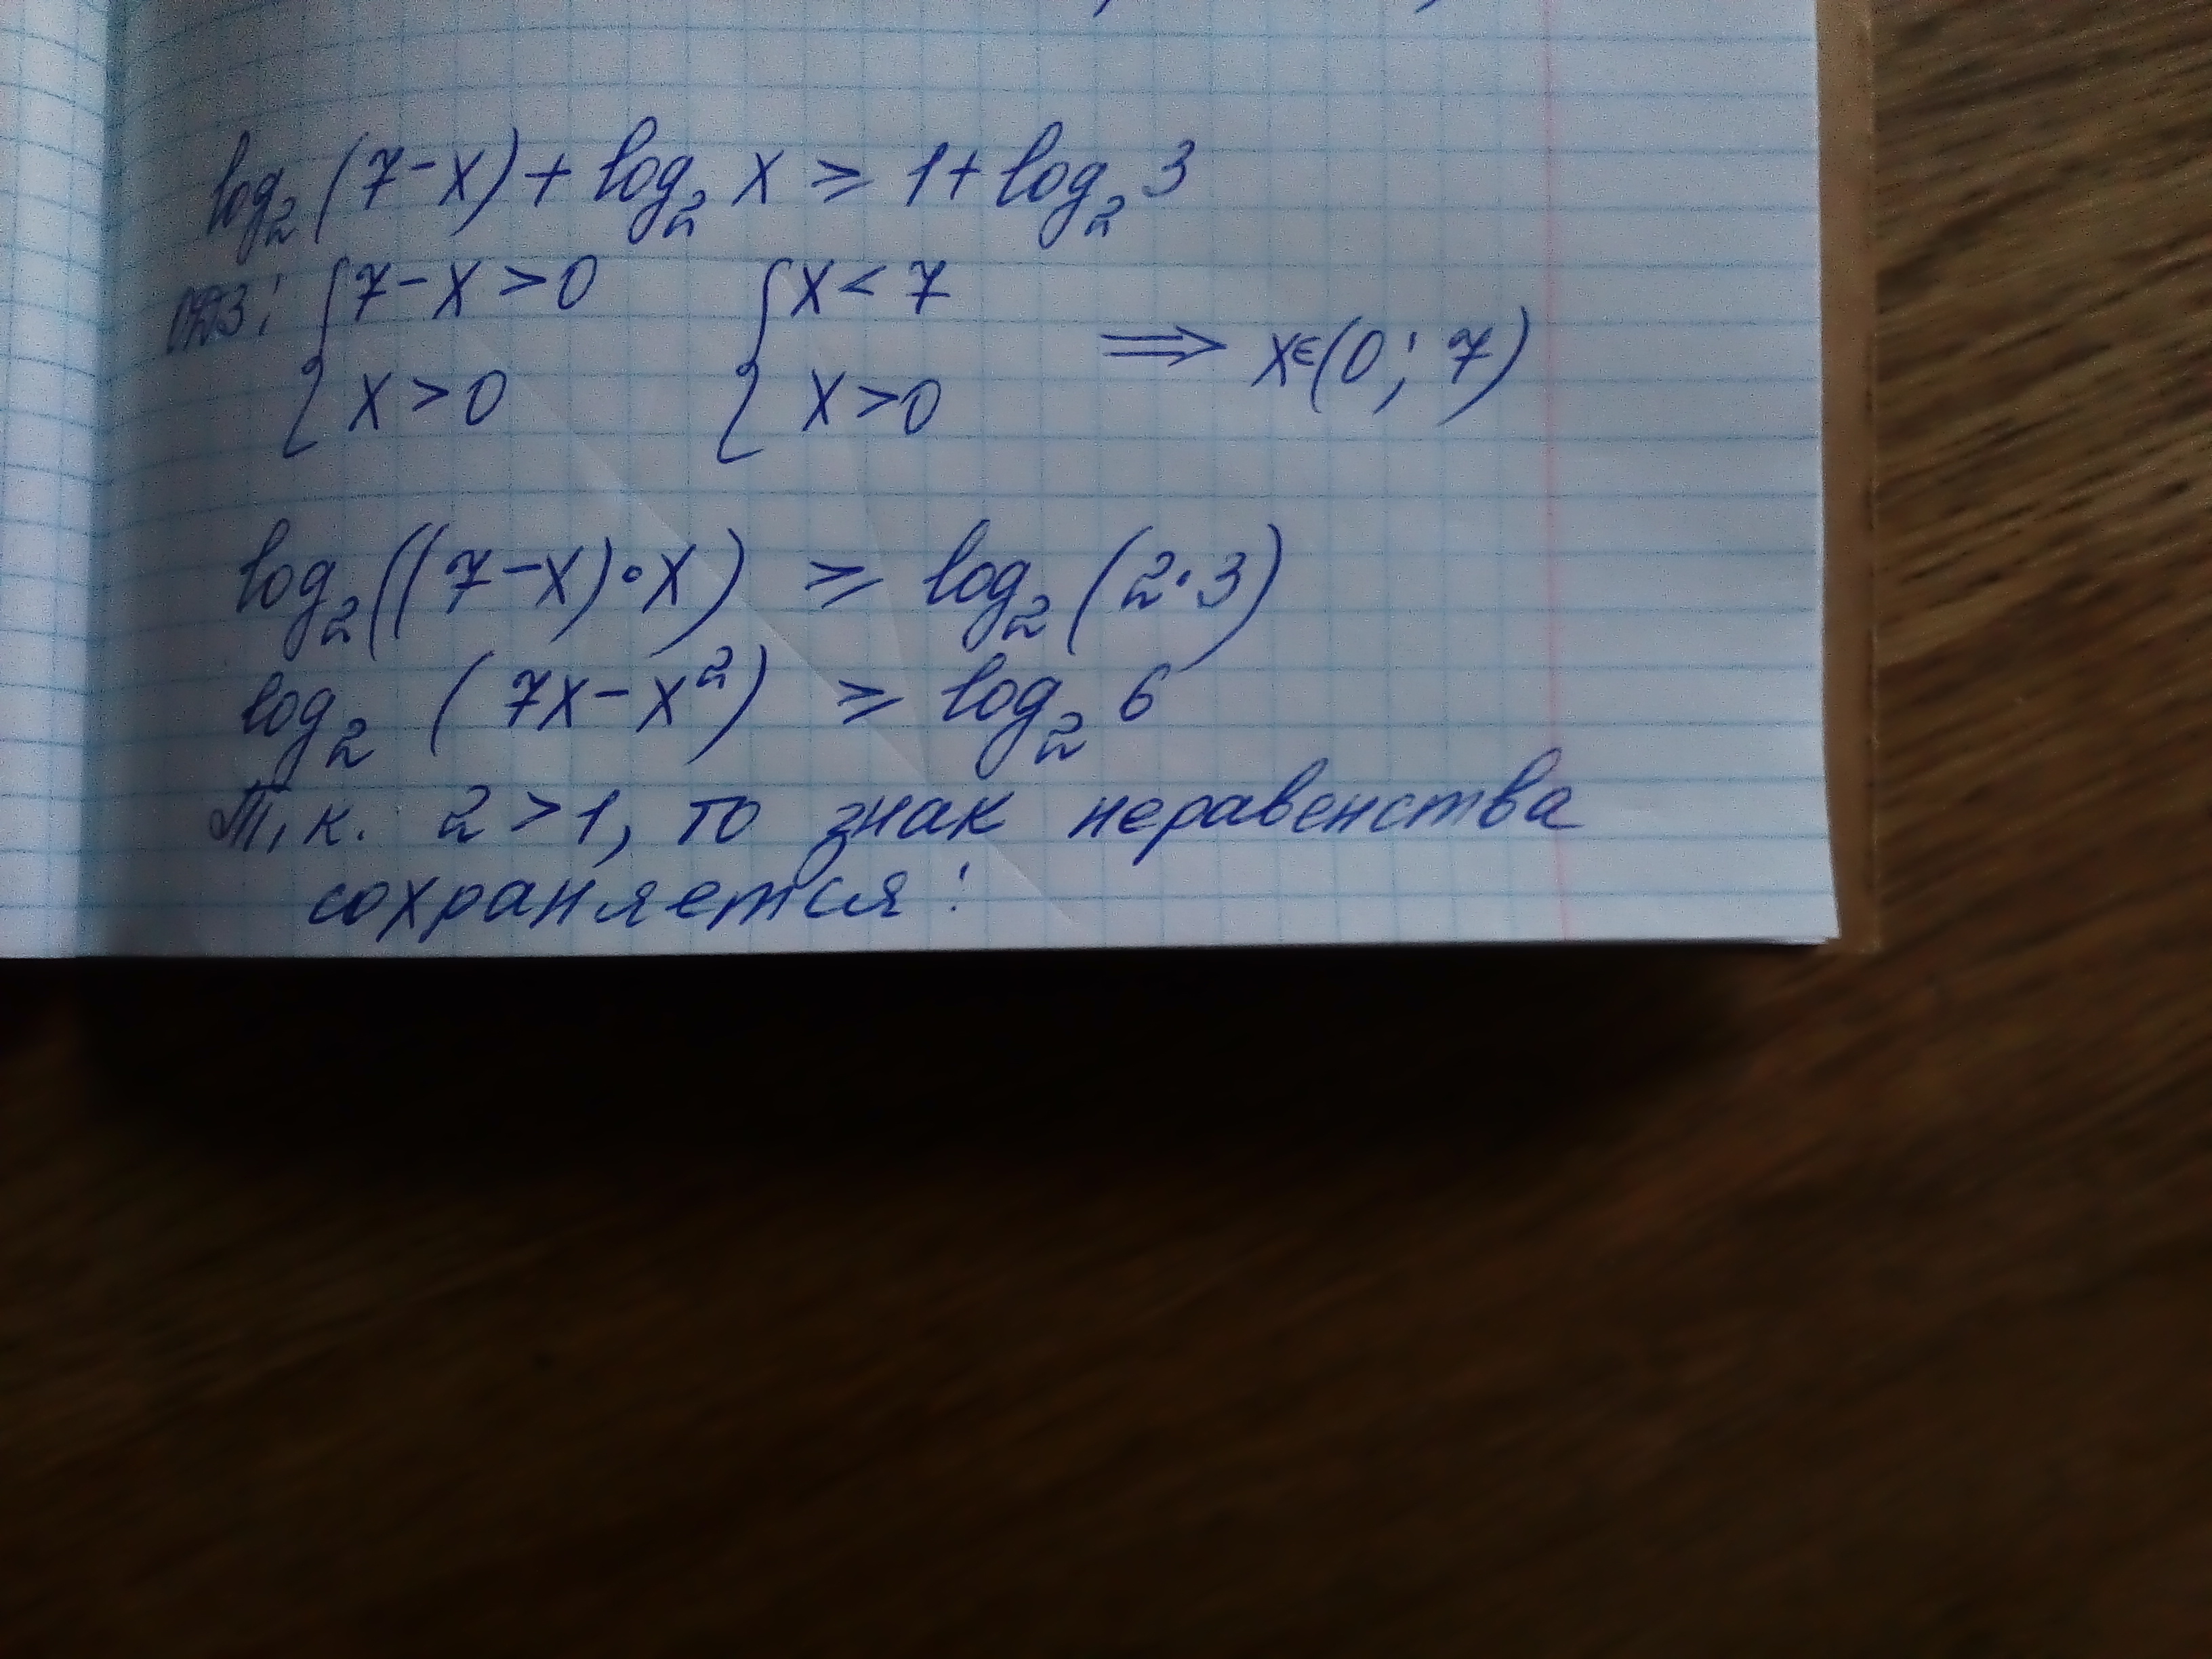 log₂(7-x)+log₂ x ≥ 1+log₂ 3
ОДЗ: {7-x>0 {x<7
x>0 x>0 ⟹ x∈(0; 7)
log₂((7-x)·x) ≥ log₂(2·3)
log₂ (7x-x²) ≥ log₂ 6
Т.к. 2>1, то знак неравенства
сохраняется: